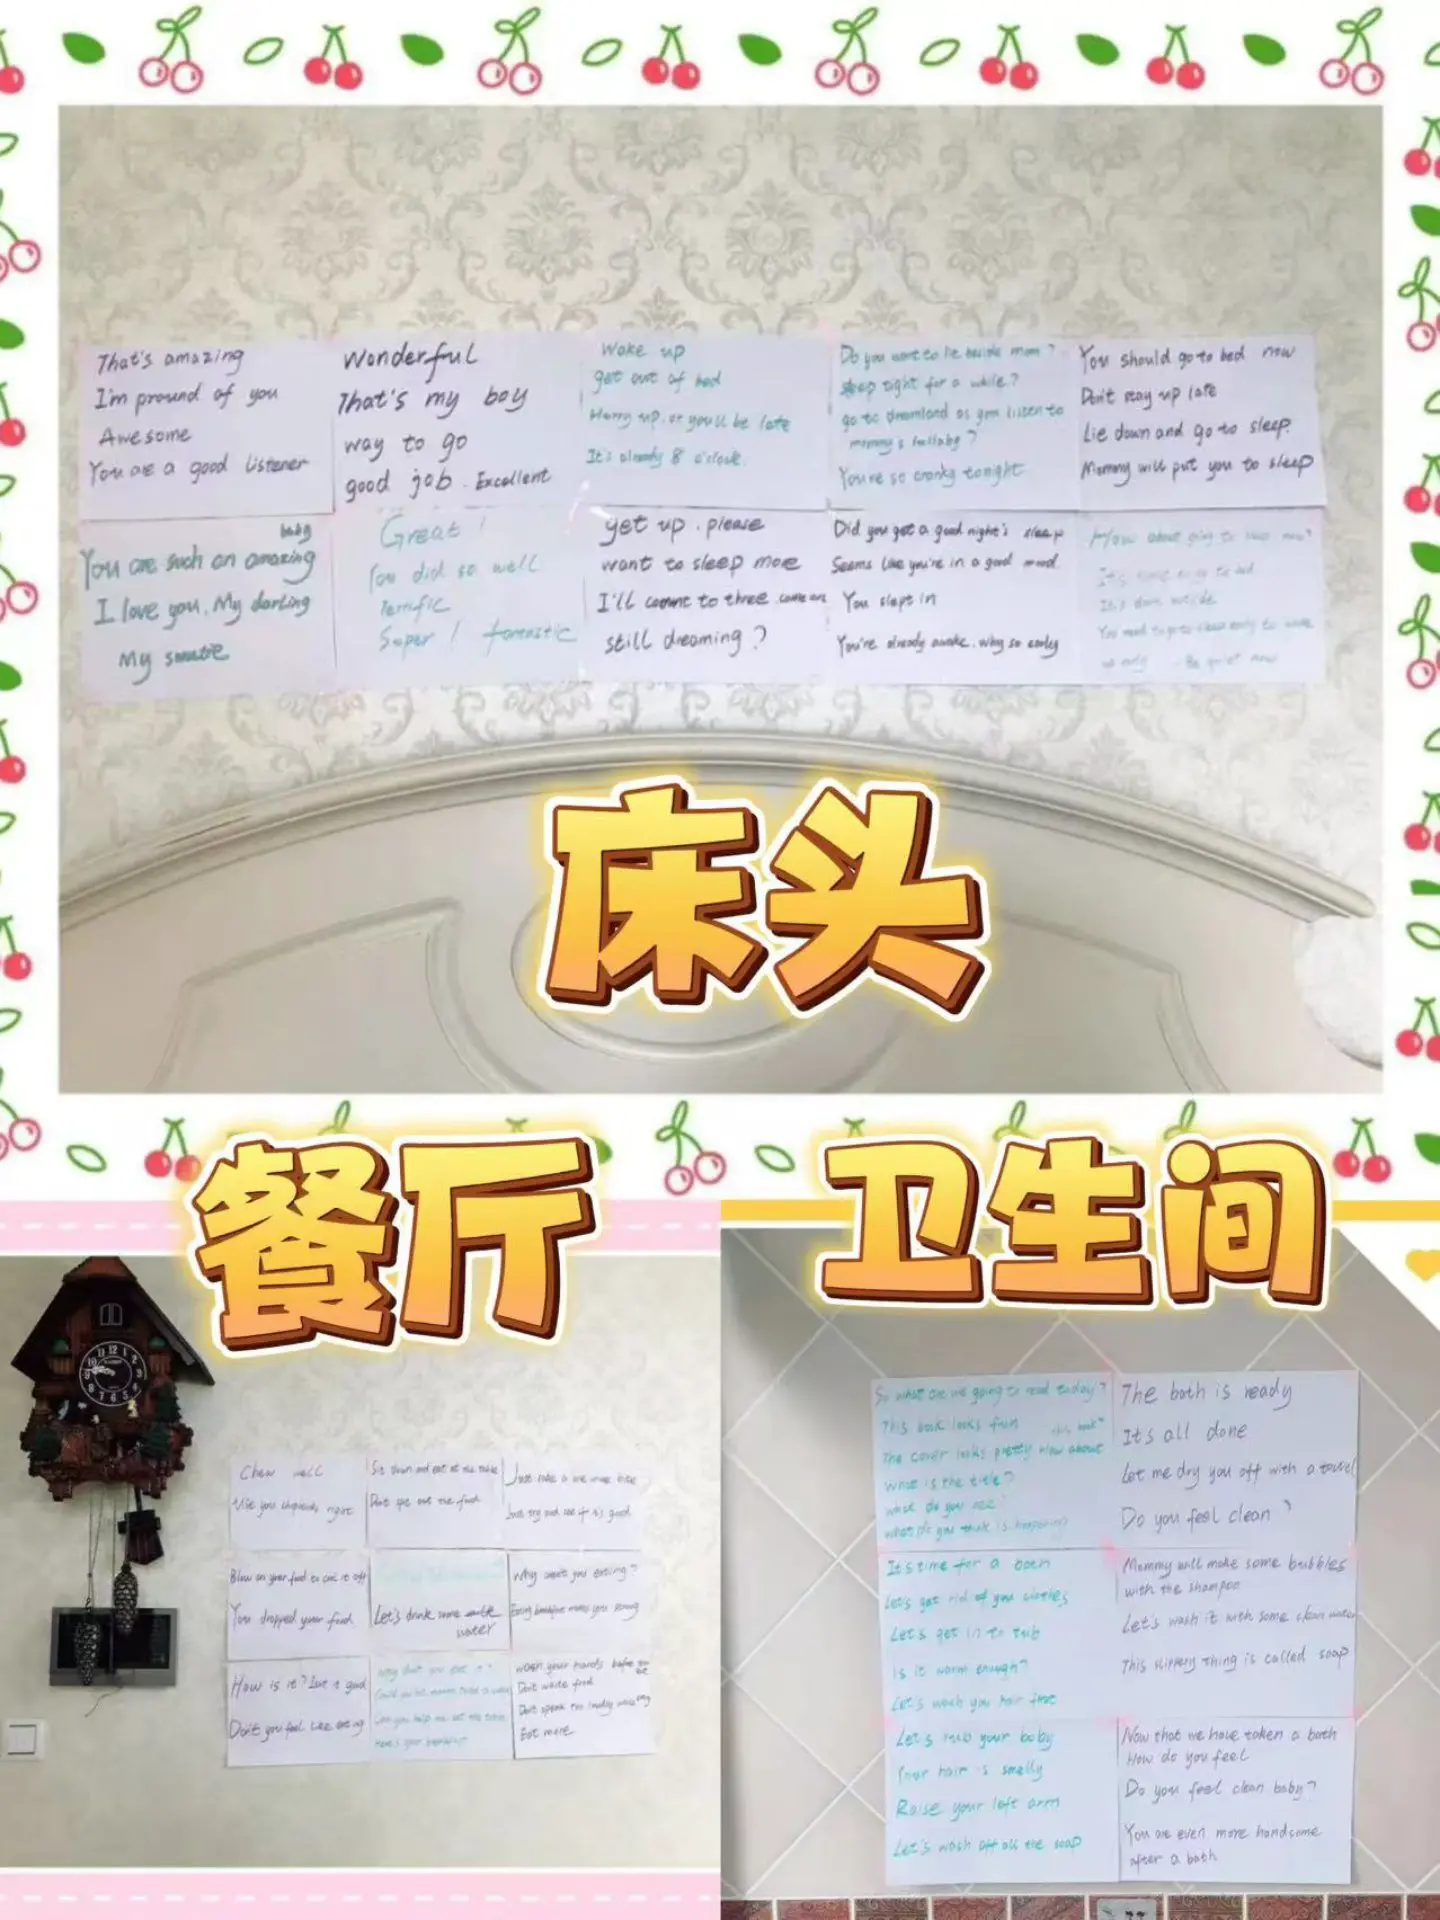 That's amazing
I'm pround of you
Awesome
You are a good listener
Wonderful
That's my boy
way to go
good job. Excellent
Wake up
get out of bed
Hurry up. or you'll be late
It's already 8 o'clock.
Do you want to lie beside mom?
sleep tight for a while?
go to dreamland as you listen to
mommy's lullaby?
You're so cranky tonight
You should go to bed now
Don't stay up late
Lie down and go to sleep.
Mommy will put you to sleep
baby
You are such an amazing
I love you. My darling
My
Great!
You did so well
Terrific
Super! fantastic
get up. please
want to sleep more
I'll count to three. come on
still dreaming?
Did you get a good night's sleep
Seems like you're in a good mood.
You slept in
You're already awake. Why so early
How about going to bed now?
It's time to go to bed
It's dark outside
You need to go to sleep early to wake
up early. Be quiet now
床头
餐厅
卫生间
Chew well
Use you chopsticks right
Sit down and eat at the table
Don't spit out the food
Just take a one more bite
Just try and see if it's good
Blow on your food to cool it off
You dropped your food
Let's drink some milk
water
Why aren't you eating?
Eating breakfast makes you strong
How is it? Isn't it good
Don't you feel like eating
Why don't you eat it?
can you help me set the table
Here's your breakfast
Wash your hands before you eat
Don't waste food
Don't speak too loudly while
Eat more
So what are we going to read today?
This book looks fun
this book?
The cover looks pretty How about
What is the title?
What do you see?
what do you think is happening
The bath is ready
It's all done
Let me dry you off with a towel
Do you feel clean?
It's time for a bath
Let's get rid of you clothes
Let's get in to tub
Is it warm enough?
Let's wash you hair first
Mommy will make some bubbles
with the shampoo
Let's wash it with some clean water
This slippery thing is called soap
Let's rub your boby
Your hair is smelly
Raise your left arm
Let's wash off all the soap
Now that we have taken a bath
How do you feel
Do you feel clean baby?
You are even more handsome
after a bath